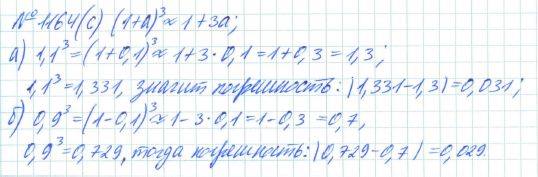 № 1164(с) (1+a)³≈1+3a;
а) 1,1³=(1+0,1)³≈1+3·0,1=1+0,3=1,3;
1,1³=1,331, значит погрешность: |1,331-1,3|=0,031;
б) 0,9³=(1-0,1)³≈1-3·0,1=1-0,3=0,7,
0,9³=0,729, тогда погрешность: |0,729-0,7|=0,029.